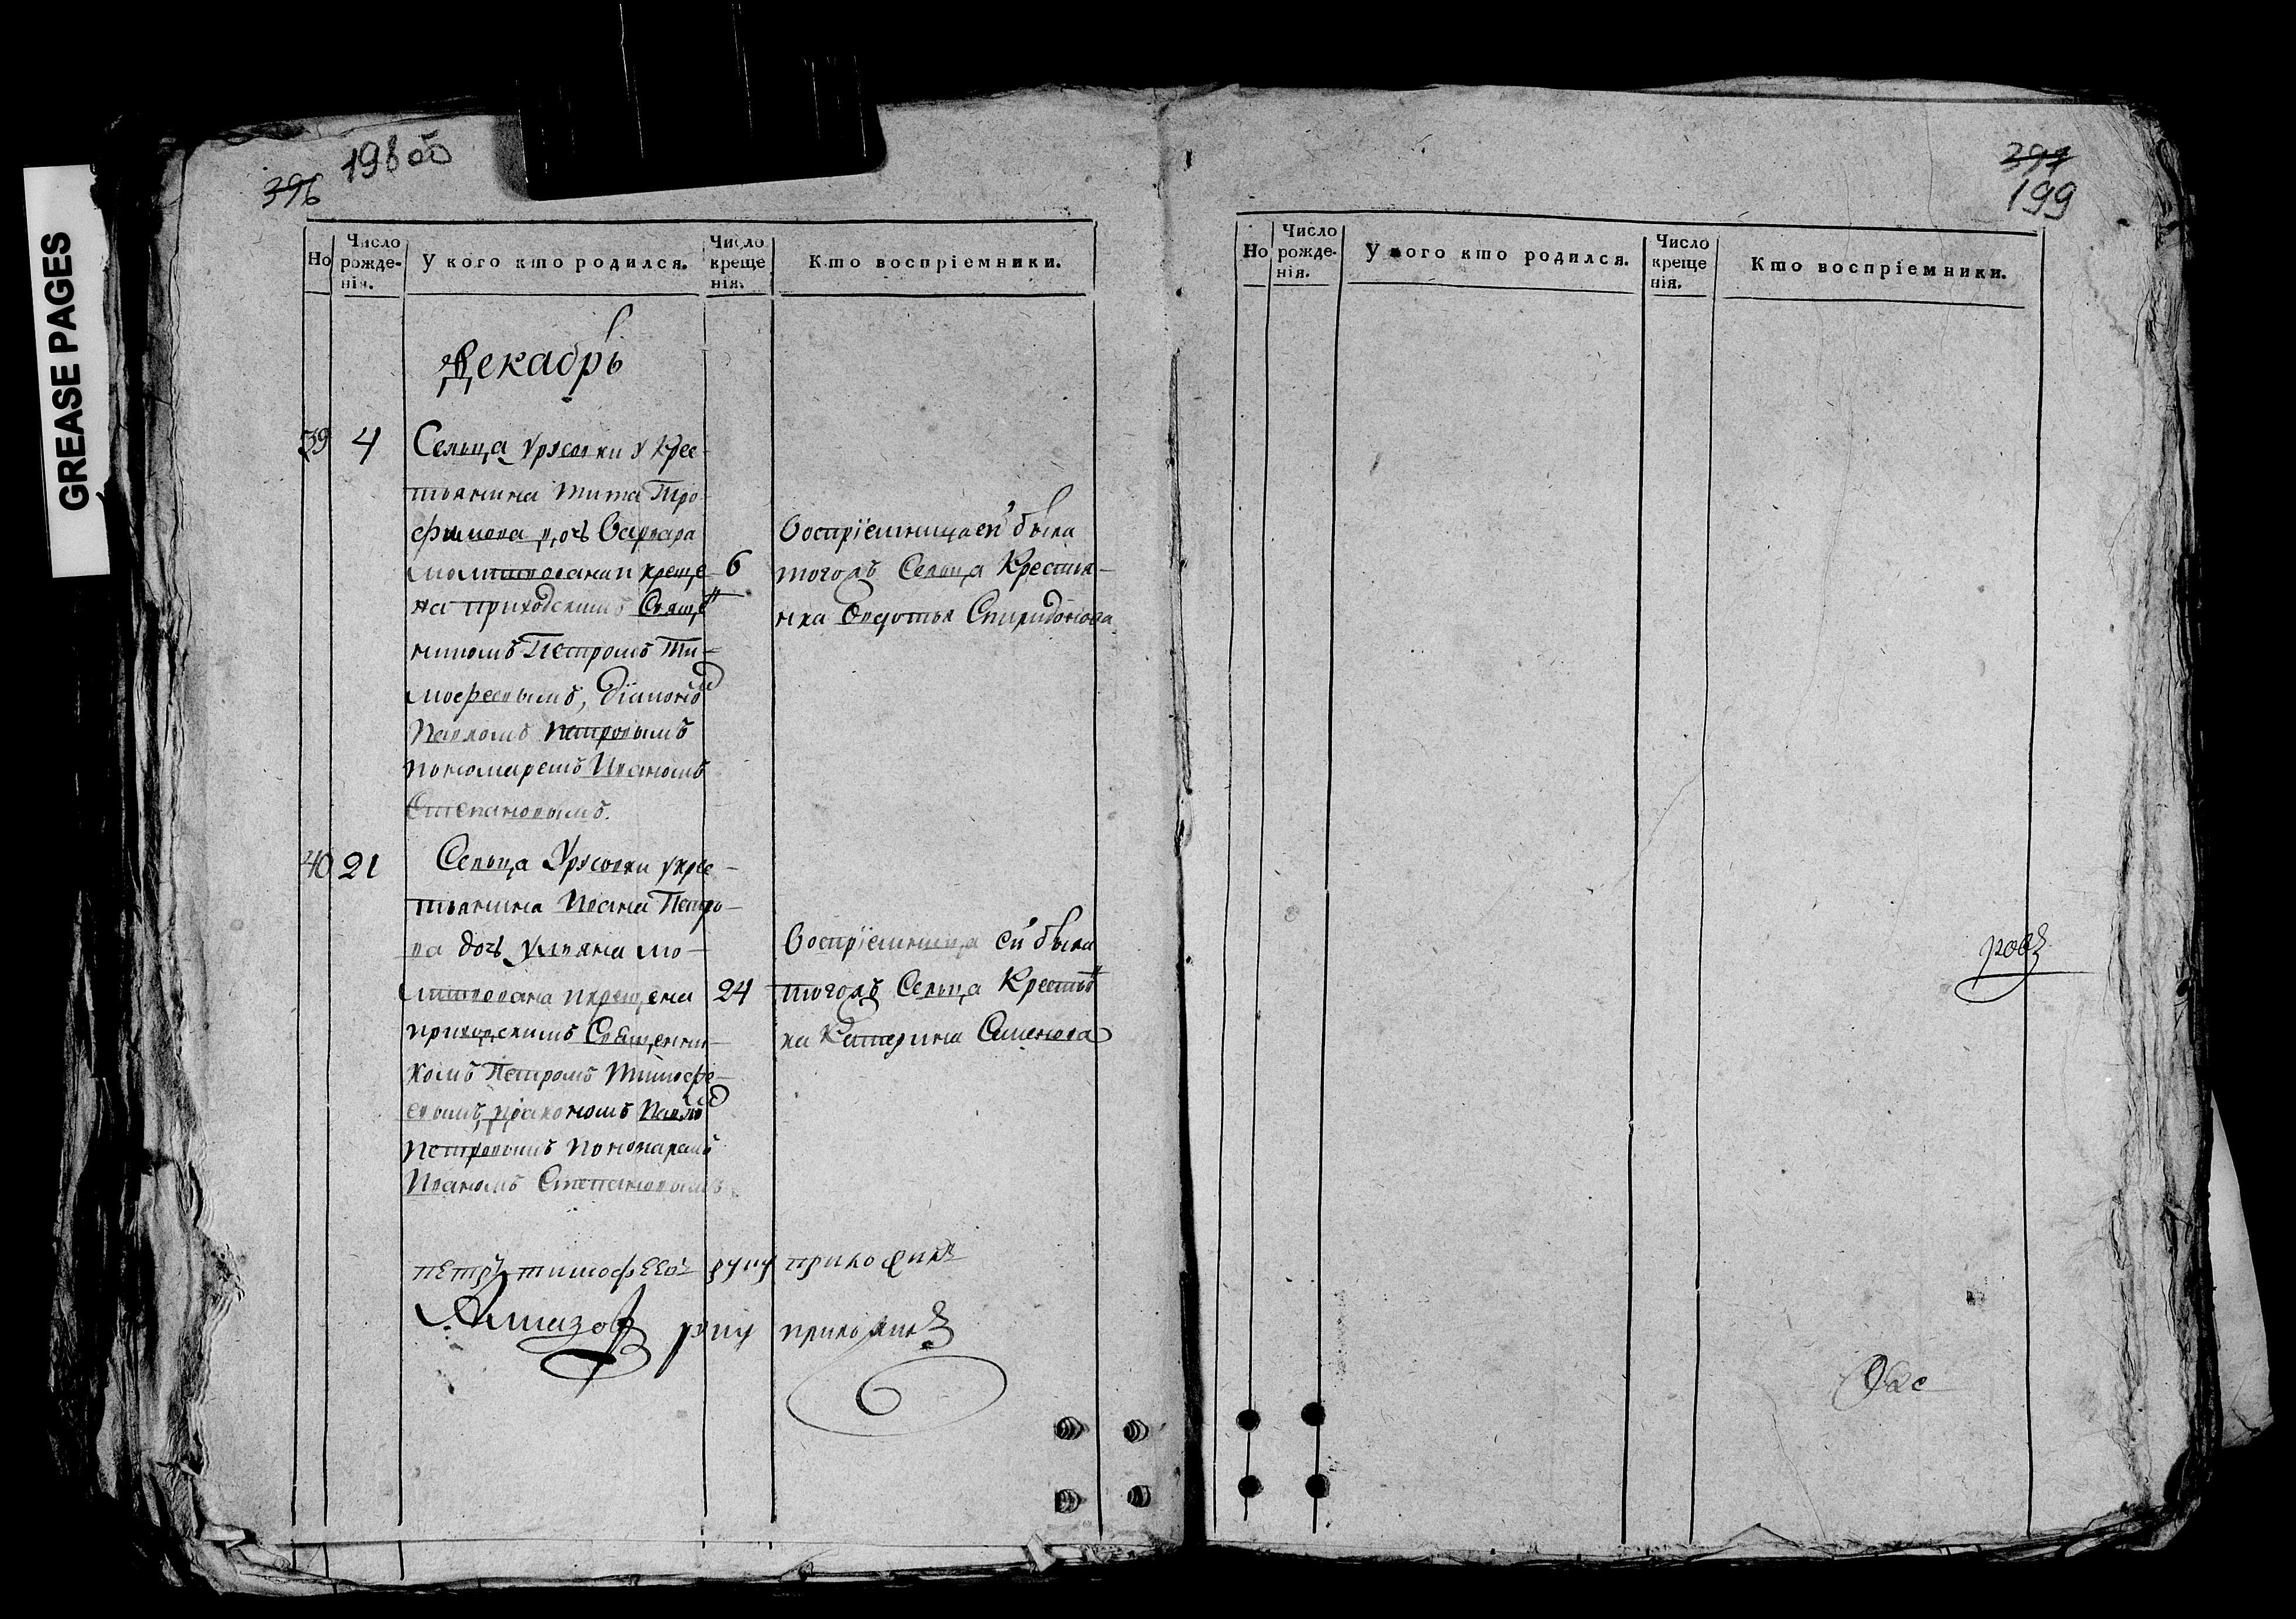 GREASE PAGES
396
198 об
Но
Число рожденія.
У кого кто родился.
Число крещенія.
Кто воспріемники.
Декабрь
39 4 Сельца Урусовки у Крес-
тьянина Тита Тро-
фимова дочь Варвара
молитвована и креще- 6
на приходскимъ Свяще-
нникомъ Петромъ Ти-
мофеевымъ, діакономъ
Павломъ Петровымъ
пономаремъ Иваномъ
Степановымъ.
Воспріемница ей была
тогожъ Сельца Крестья-
нка Авдотья Спиридонова
40 21 Сельца Урусовки у кре-
стьянина Ивана Петро-
ва дочь Ульяна мо-
литвована и крещена 24
приходскимъ Священни-
комъ Петромъ Тимофе-
евымъ, діакономъ Павломъ
Петровымъ пономаремъ
Иваномъ Степановымъ
Воспріемница ей была
тогожъ Сельца Крестьян
ка Катерина Семенова
петръ тимофеевъ руку приложилъ
руку приложилъ
397
199
Но
Число рожденія.
У кого кто родился.
Число крещенія.
Кто воспріемники.
ровъ